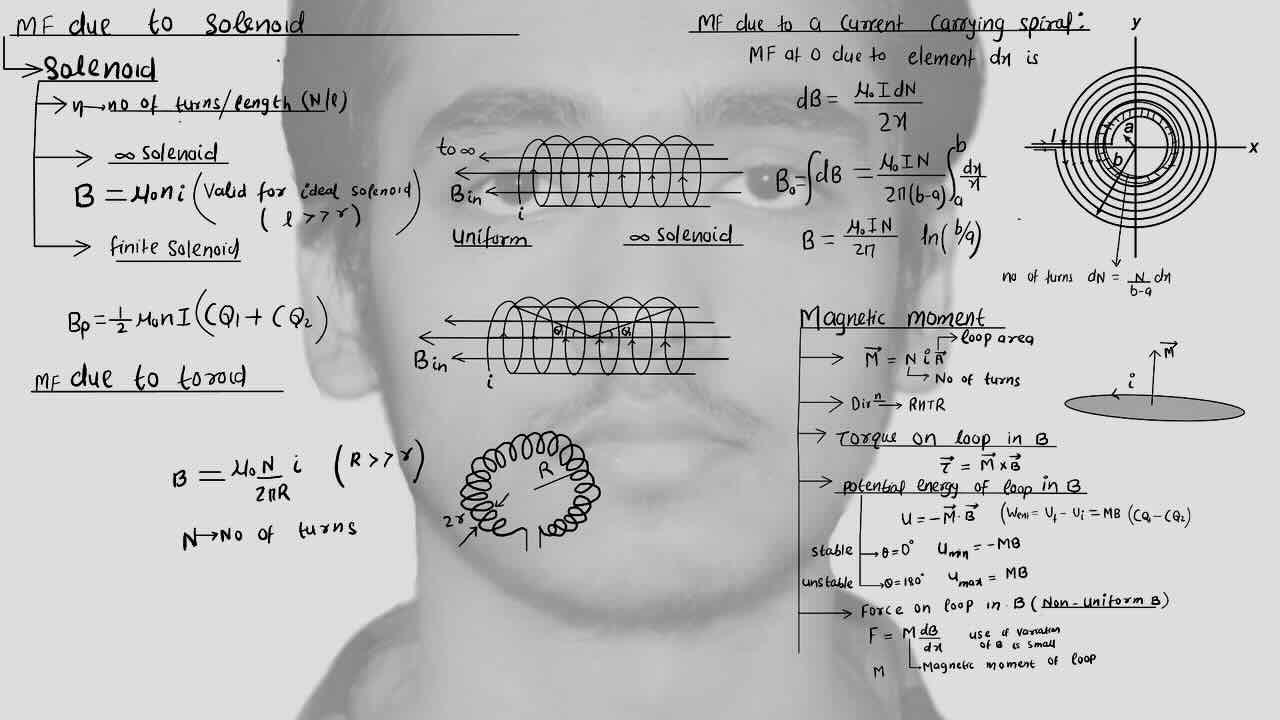 MF due to solenoid
Solenoid
n→no of turns/length (N/l)
∞ solenoid
B = μ₀ni (Valid for ideal solenoid)
(l >> r)
finite solenoid
Bp = 1/2 μ₀nI (CQ₁ + CQ₂)
MF due to toroid
B = μ₀N/2πR i (R >> r)
N→No of turns
to ∞
Bin
i
uniform
∞ solenoid
Bin
i
R
2r
MF due to a current carrying spiral:
MF at O due to element dx is
dB = μ₀IdN/2x
B₀ = ∫dB = μ₀IN/2π(b-a) ∫ₐᵇ dx/x
B = μ₀IN/2π ln(b/a)
y
x
I
a
b
no of turns dN = N/b-a dx
Magnetic moment
loop area
M⃗ = N i A⃗
No of turns
Dirⁿ → RHTR
M⃗
i
Torque on loop in B
τ⃗ = M⃗ × B⃗
potential energy of loop in B
U = -M⃗·B⃗ (Wext = Uf - Ui = MB (CQ₁-CQ₂)
stable → θ=0° Umin = -MB
unstable → θ=180° Umax = MB
Force on loop in B (Non-uniform B)
F = M dB/dx use if variation
of B is small
Magnetic moment of loop
M